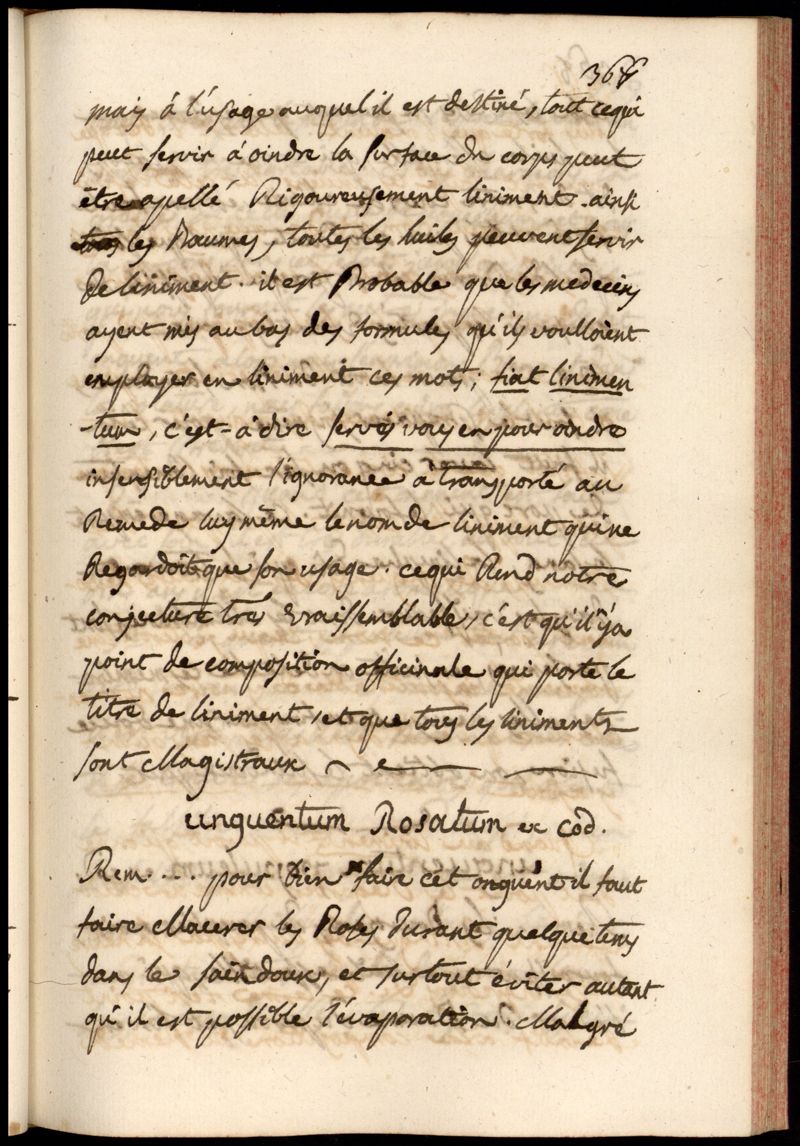 mais á l'usage auquel il est destiné, tout cequi
peut servir á oindre la surface du corps peut
être apellé Rigoureusement liniment. ainsi
tous les Baumes, toutes les huiles peuvent servir
de liniment. il est Probable que les medecins
ayent mis au bas des formules qu'ils voulloient
employer en liniment ces mots; fiat linimen
-tum, c'est=à dire servés vous en pour oindre
insensiblement l'ignorance à transporté au
Remede luy même le nom de liniment qui ne
Regardoit que son usage. cequi Rend nôtre
conjecture trés vraissemblable, c'est qu'il n'ya
point de composition officinale qui porte le
titre de liniment, et que tous les liniments
sont Magistraux
unguentum Rosatum ex Cod.
Rem.... pour bien faire cet onguent il faut
faire Macerer les Roses durant quelque tems
dans le saindoux, et surtout éviter autant
qu'il est possible l'évaporation. Malgré